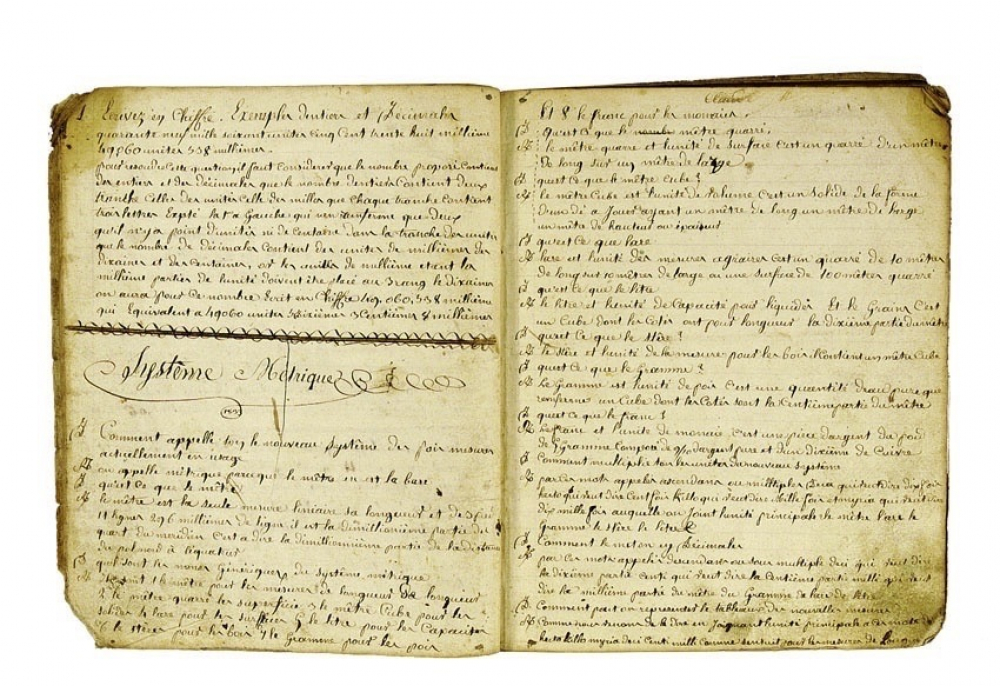 1 Ecrivez en Chiffre. Exemples dentiers et Décimales
quarante neuf mille soixant unites Cinq Cent trente huit millieme
49060 unites 538 millièmes.
pour resoudre Cette question, il faut considerer que le nombre proposé Contient
des entiers et des décimales que le nombre dentiers Contient deux
tranche Celles des unités Celle des milles que Chaque tranche Contient
trois lettres Expté la 1re a Gauche qui renferme que deux
qu'il n'y a point d'unités ni de Centaine dans la tranche des unités
que le nombre de décimales Contient des unites de millièmes des
dixaines et des Centaines, les unités de millième etant les
millième parties de lunité doivent être placé au 3 rang le dixaines
on aura pour Ce nombre Ecrit en Chiffre 49,060,538 millième
qui Equivalent a 49060 unites 5 dixièmes 3 Centièmes 8 millièmes
Système Métrique
D Comment appelle ton le nouveau Système des poir mesures
actuellement en usage
R on appelle métrique parceque le mètre en est la base
D quest Ce que le mètre
R le mètre est la seule mesure liniaire sa longueur est de 3 pied
11 lignes 296 millièmes de ligne il est la dimillionième partie du
quart du meridien Cest a dire la dimillionnième partie de la distance
du pol nord a léquateur
D quel sont les noms Génériques du Système métrique
R 1 le mètre pour les mesures de longueur
2 le mètre quarré les superficie 3 le mètre Cube pour les
solides 4 lare pour les surfaces 5 le litre pour les Capacités
6 le stère pour les bois 7 le Gramme pour les poir
Et 8 le franc pour les monaies.
D quest Ce que le mètre quarré.
R le mètre quarré et lunité de surface Cest un quarré dun mètre
de long sur un mètre de large
D quest Ce que le mètre Cube?
R le mètre Cube est lunité de volume Cest un solide de la forme
dun dé a Jouer ayant un mètre de long un mètre de large
un mètre de hauteur ou épaisseur
D quest Ce que lare
R lare et lunité des mesures agraires Cest un quarré de 10 mètres
de long sur 10 mètres de large ou une surface de 100 mètres quarré
D quest Ce que le litre
R le litre et lunité de Capacité pour liquides Et le Grains Cest
un Cube dont les Cotés ont pour longueur la dixième partie du mètre
D quest Ce que le Stère?
R le stère et lunité de la mesure pour les bois il Contient un mètre Cube
D quest Ce que le Gramme?
R Le Gramme est lunité de poir Cest une quantité deau pure que
renferme un Cube dont les Cotés sont la Centième partie du mètre
D quest Ce que le franc?
R Le franc et lunite de monaie Cest une pièce dargent du poid
de 5 Gramme Composé de 9/10 dargent pure et dun dixième de Cuivre
D Comment multiplie ton les unités du nouveau Système
R par Ces mots appelés ascendans ou multiples Deca qui veut dire dix fois
hecto qui veut dire Cent fois Killo qui veut dire Mille fois et myria qui veut dire
dix mille fois auxquelle on Joint lunité principale le mètre lare le
Gramme le Stère le litre
D Comment le met on en Décimales
R par Ces mots appelés descendans ou sous multiple deci qui veut dire
la dixième partie Centi qui veut dire la Centième partie milli qui veut
dire la millième partie du mètre du Gramme de lare du litre
D Comment peut on representer le tableau des nouvelles mesures
R Comme nous venons de le dire en Joignant lunité principale a Ces mots deca
hecto killo myria deci Centi milli Comme sensuit pour les mesures de Longueur